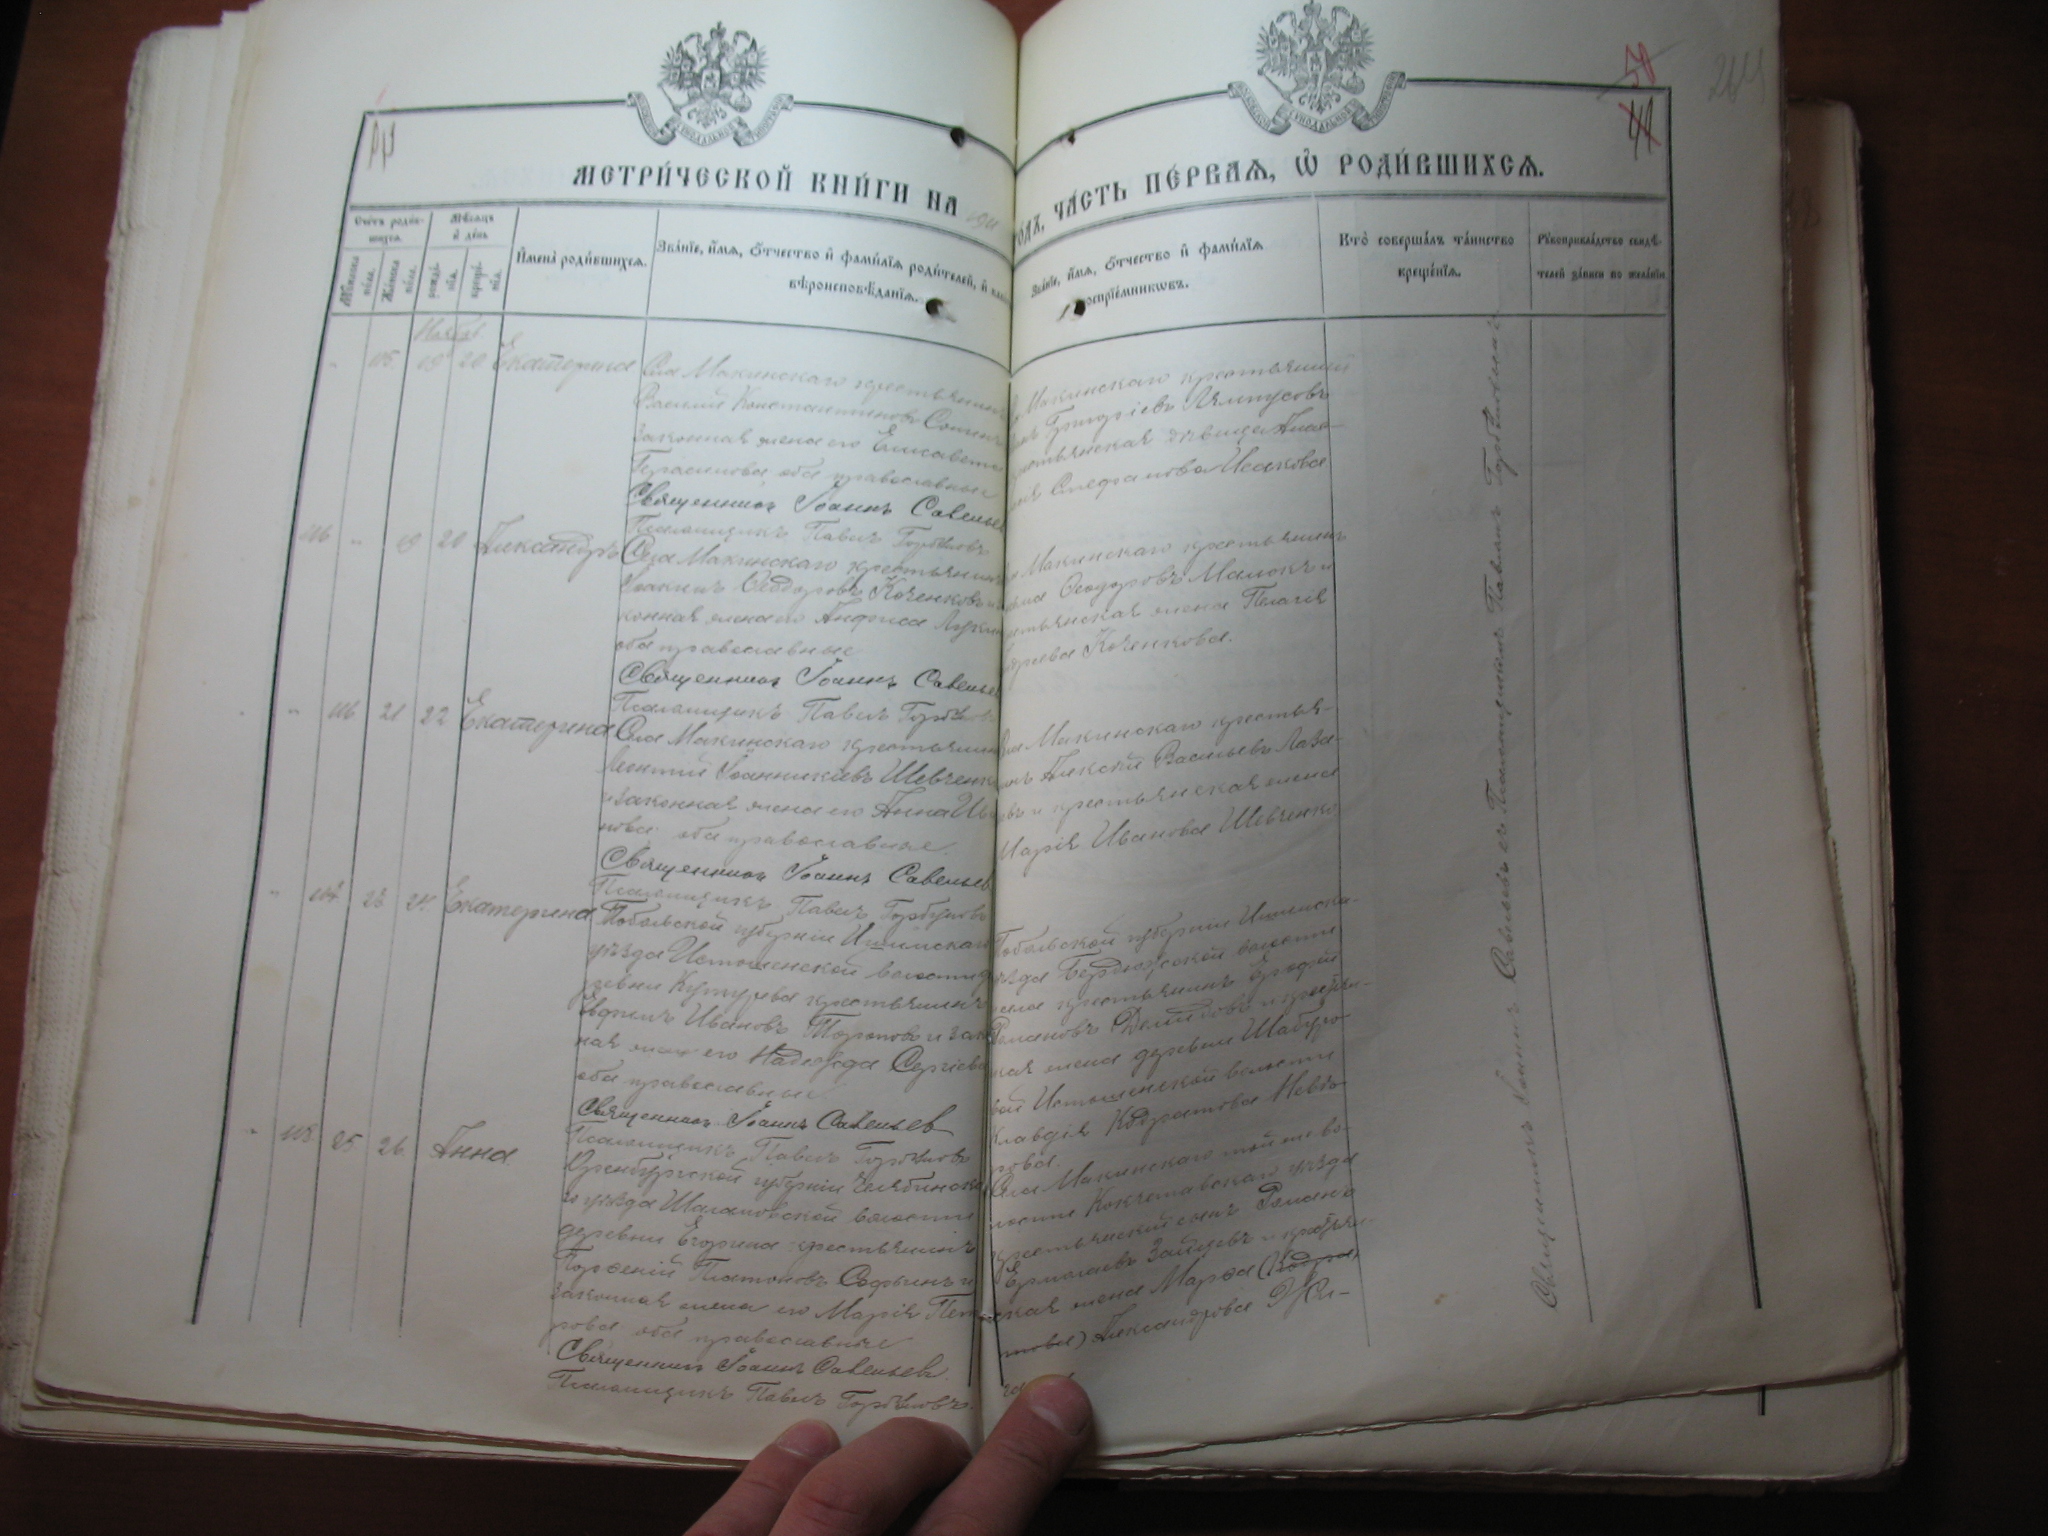 МЕТРИ́ЧЕСКОЙ КНИ́ГИ НА 1911
ГОДЪ, ЧА́СТЬ ПЕ́РВАѦ, Ѡ҆ РОДИ́ВШИХСѦ.
Сче́тъ роди́вшихсѧ.
Мѣ́сѧцъ и҆ де́нь
Мꙋ́жеска по́ла.
Же́нска по́ла.
рожде́нїѧ.
креще́нїѧ.
И҆мена̀ роди́вшихсѧ.
Зва́нїе, и҆́мѧ, ѻ҆́тчество и҆ фами́лїѧ роди́телей, и҆ како́
вѣроисповѣ́данїѧ.
Зва́нїе, и҆́мѧ, ѻ҆́тчество и҆ фами́лїѧ
воспрїе́мникѡвъ.
Кто̀ соверша́лъ та́инство
креще́нїѧ.
Рꙋкоприкла́дство свидѣ́-
телей за́писи по жела́нїю
Ноября
115. 19 20 Екатерина
Села Макинскаго крестьянинъ
Василий Константиновъ Сотни
законная жена его Елисавета
Герасимова, оба православные
Священникъ Іоаннъ Савельев
Псаломщикъ Павелъ Горбуновъ
Макинскаго крестьянинъ
Григоріевъ Ляпусовъ
крестьянская дѣвица
Стефанова Исакова
116 " 19 20 Александръ
Села Макинскаго крестьянинъ
Іоакимъ Ѳеодоровъ Коченковъ и
конная жена его Анфиса Лукин
оба православные
Священникъ Іоаннъ Савельев
Псаломщикъ Павелъ Горбунов
Макинскаго крестьянинъ
Ѳеодоровъ Малюкъ и
крестьянская жена Пелагея
Коченкова.
" 116 21 22 Екатерина
Села Макинскаго крестьянин
Леонтий Іоанникіевъ Шевченк
и законная жена его Анна Ива
нова оба православные.
Священникъ Іоаннъ Савельев
Псаломщикъ Павелъ Горбуновъ
Села Макинскаго крестья-
нинъ Алексѣй Васильевъ Лаза-
ревъ и крестьянская жена
Марія Иванова Шевченко
" 117. 23. 24. Екатерина
Тобольской губерніи Ишимскаго
уѣзда Истошенской волости д
ревни крестьянинъ
Евфимъ Ивановъ Торопов и зак
ная жена его Надежда Сергіева
оба православные
Священникъ Іоаннъ Савельев
Псаломщикъ Павелъ Горбуновъ
Тобольской губерніи Ишимска-
уѣзда Бердюжской волости
села крестьянинъ Ерофей
Романовъ Демидовъ и крестьян-
ская жена деревни Шабуро-
вой Истошенской волости
Клавдія Кодратова Невѣ-
рова.
" 118 25 26. Анна.
Оренбургской губерніи Челябинска
го уѣзда волости
деревни Егорина крестьянинъ
Парѳеній Платоновъ Софьинъ и
законная жена его Марія Пет
рова оба православные
Священникъ Іоаннъ Савельевъ.
Псаломщикъ Павелъ Горбуновъ.
Села Макинскаго той же во-
лости Кокчетавскаго уѣзда
крестьянскій сынъ Романъ
Ермолаевъ Зайцевъ и крестьян-
ская жена Марѳа (Кодра-
това) Александрова
Священникъ Іоаннъ Савельевъ съ Псаломщикомъ Павломъ Горбуновымъ